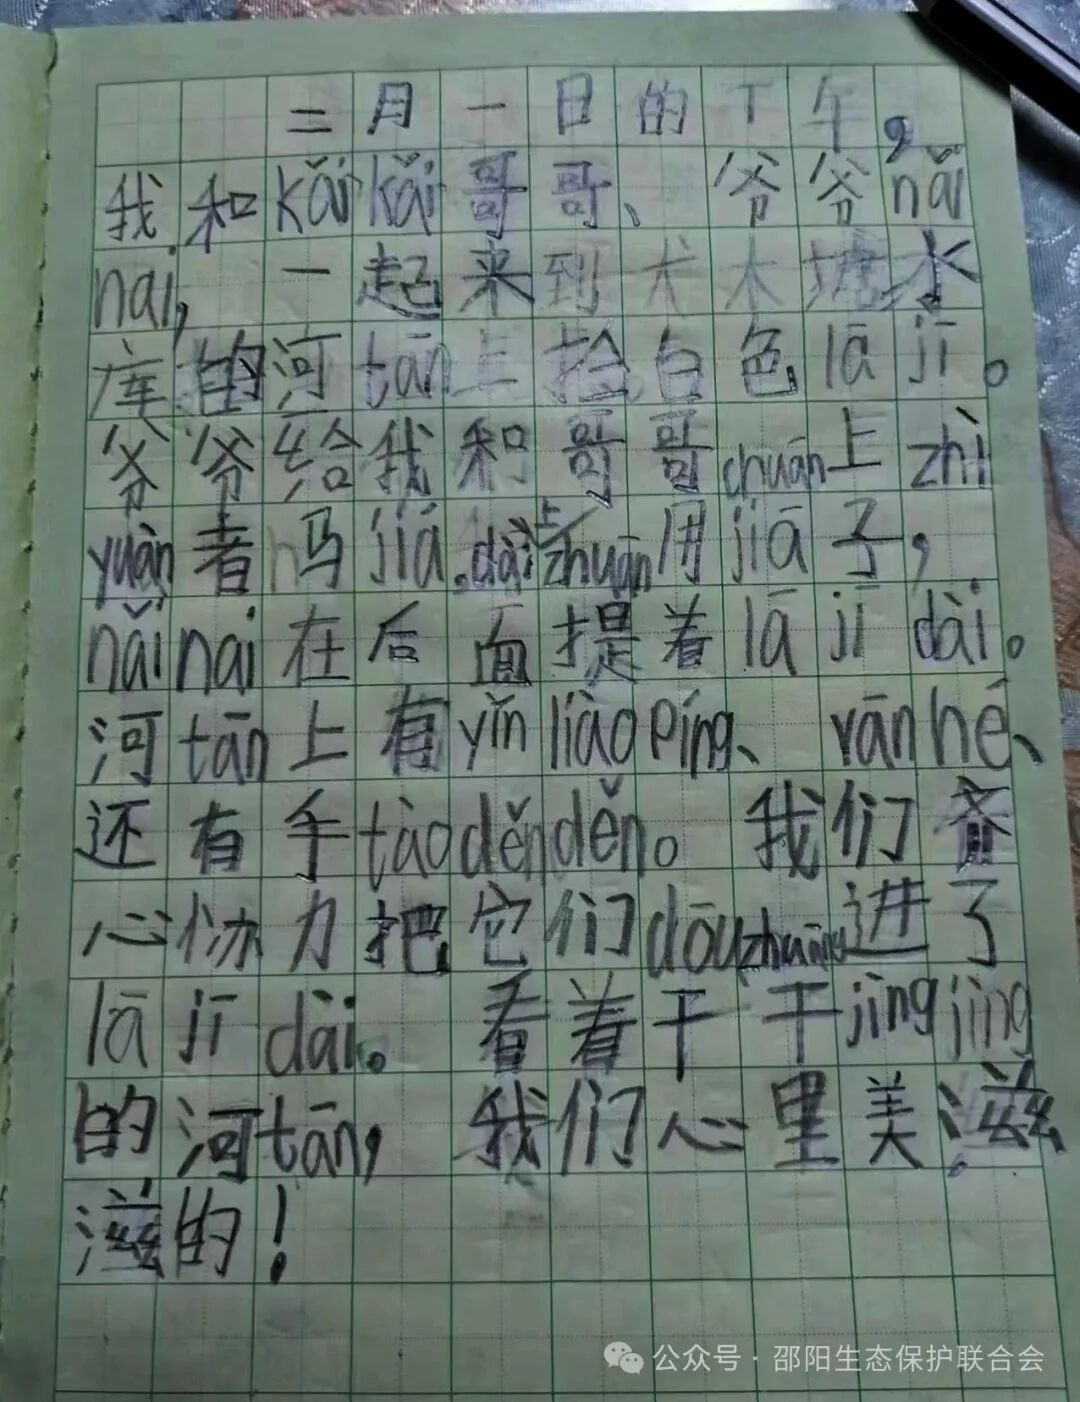 三月一日的下午，
我和kǎikǎi哥哥、爷爷nǎi
nai，一起来到犬木塘水
库的河tān上捡白色lājī。
爷爷给我和哥哥chuān上zhì
yuàn者马jiá.dài上zhuān用jiā子，
nǎinai在后面提着lājīdài。
河tān上有yǐnliàopíng、fànhé、
还有手tàoděnděn。我们齐
心协力把它们dōuzhuāng进了
lājīdài。看着干干jìngjìng
的河tān，我们心里美滋
滋的！
公众号·邵阳生态保护联合会